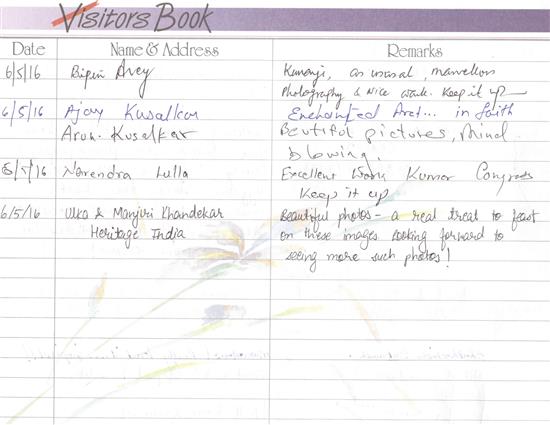 Visitors Book
Date Name & Address Remarks
6/5/16 Bipin Kumarji, as unusal, marvellous
Photography & Nice work. Keep it up
6/5/16 Ajay Kusalkar Enchanted Art... in faith
Arun. Kusalkar Beutiful pictures, Mind
blowing.
6/5/16 Narendra Lulla Excellent Work Kumar Congrats
Keep it up
6/5/16 Ulka & Manjiri Khandekar Beautiful photos - a real treat to feast
Heritage India on these images. Looking forward to
seeing more such photos!